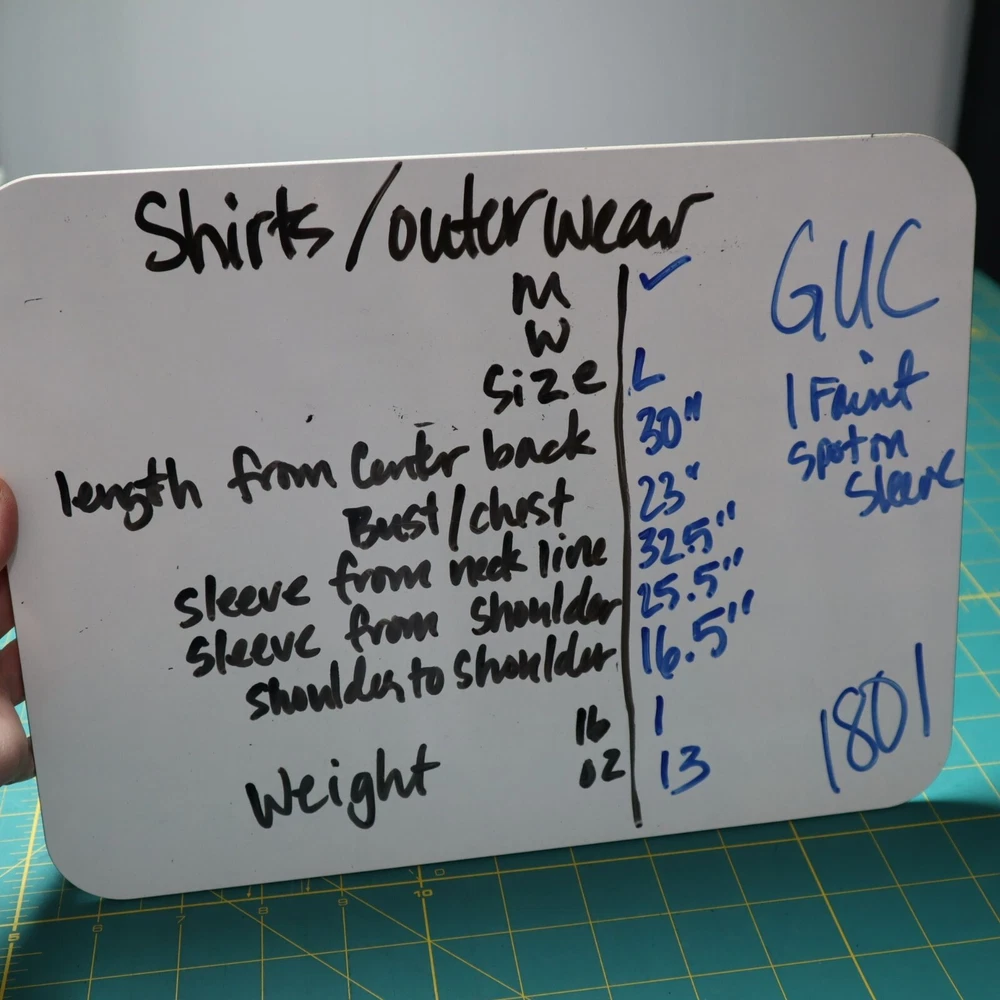 Shirts/outerwear
M ✓
W
Size L
length from Center back 30"
Bust/chest 23"
sleeve from neck line 32.5"
sleeve from shoulder 25.5"
shoulder to shoulder 16.5"
lb 1
Weight oz 13
GUC
1 Faint
spot on
Sleeve
1801
5 6 7 8 9 10